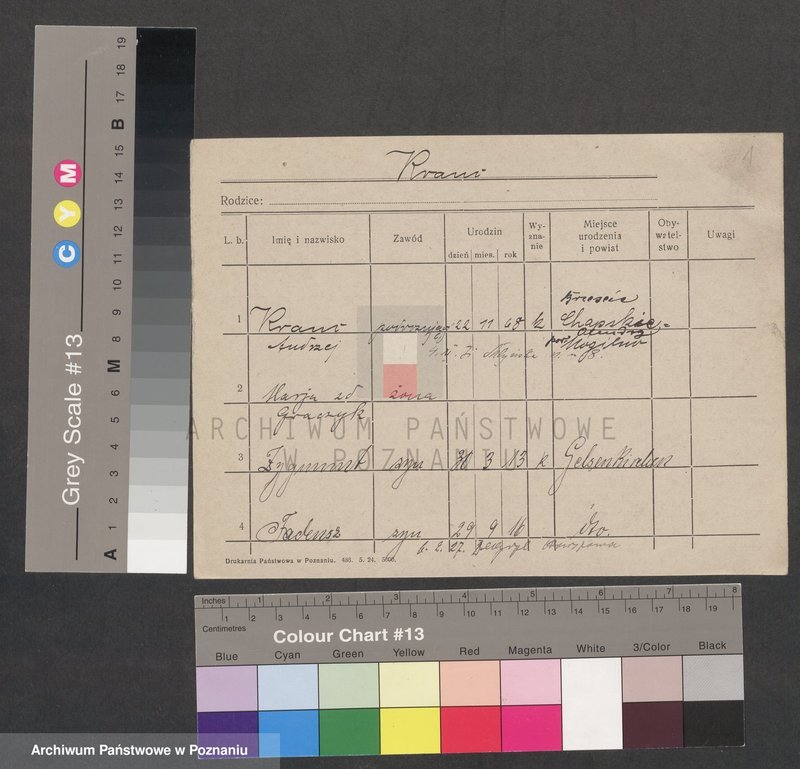 Krani
1
Rodzice:
L. b. Imię i nazwisko Zawód Urodzin dzień mies. rok Wy-zna-nie Miejsce urodzenia i powiat Oby-watel-stwo Uwagi
1 Krani 22 11 68 k
Andrzej Mogilno
2 Marja zd żona
Graczyk
3 Zygmunt syn 30 3 13 k Gelsenkirchen
4 Tadeusz syn 29 9 16 dto.
6. 2. 27.
Drukarnia Państwowa w Poznaniu. 486. 5. 24. 5000.
ARCHIWUM PAŃSTWOWE
W POZNANIU
Grey Scale #13
C Y M
A 1 2 3 4 5 6 M 8 9 10 11 12 13 14 15 B 17 18 19
Inches 1 2 3 4 5 6 7 8
1 2 3 4 5 6 7 8 9 10 11 12 13 14 15 16 17 18 19
Centimetres
Colour Chart #13
Blue Cyan Green Yellow Red Magenta White 3/Color Black
Archiwum Państwowe w Poznaniu